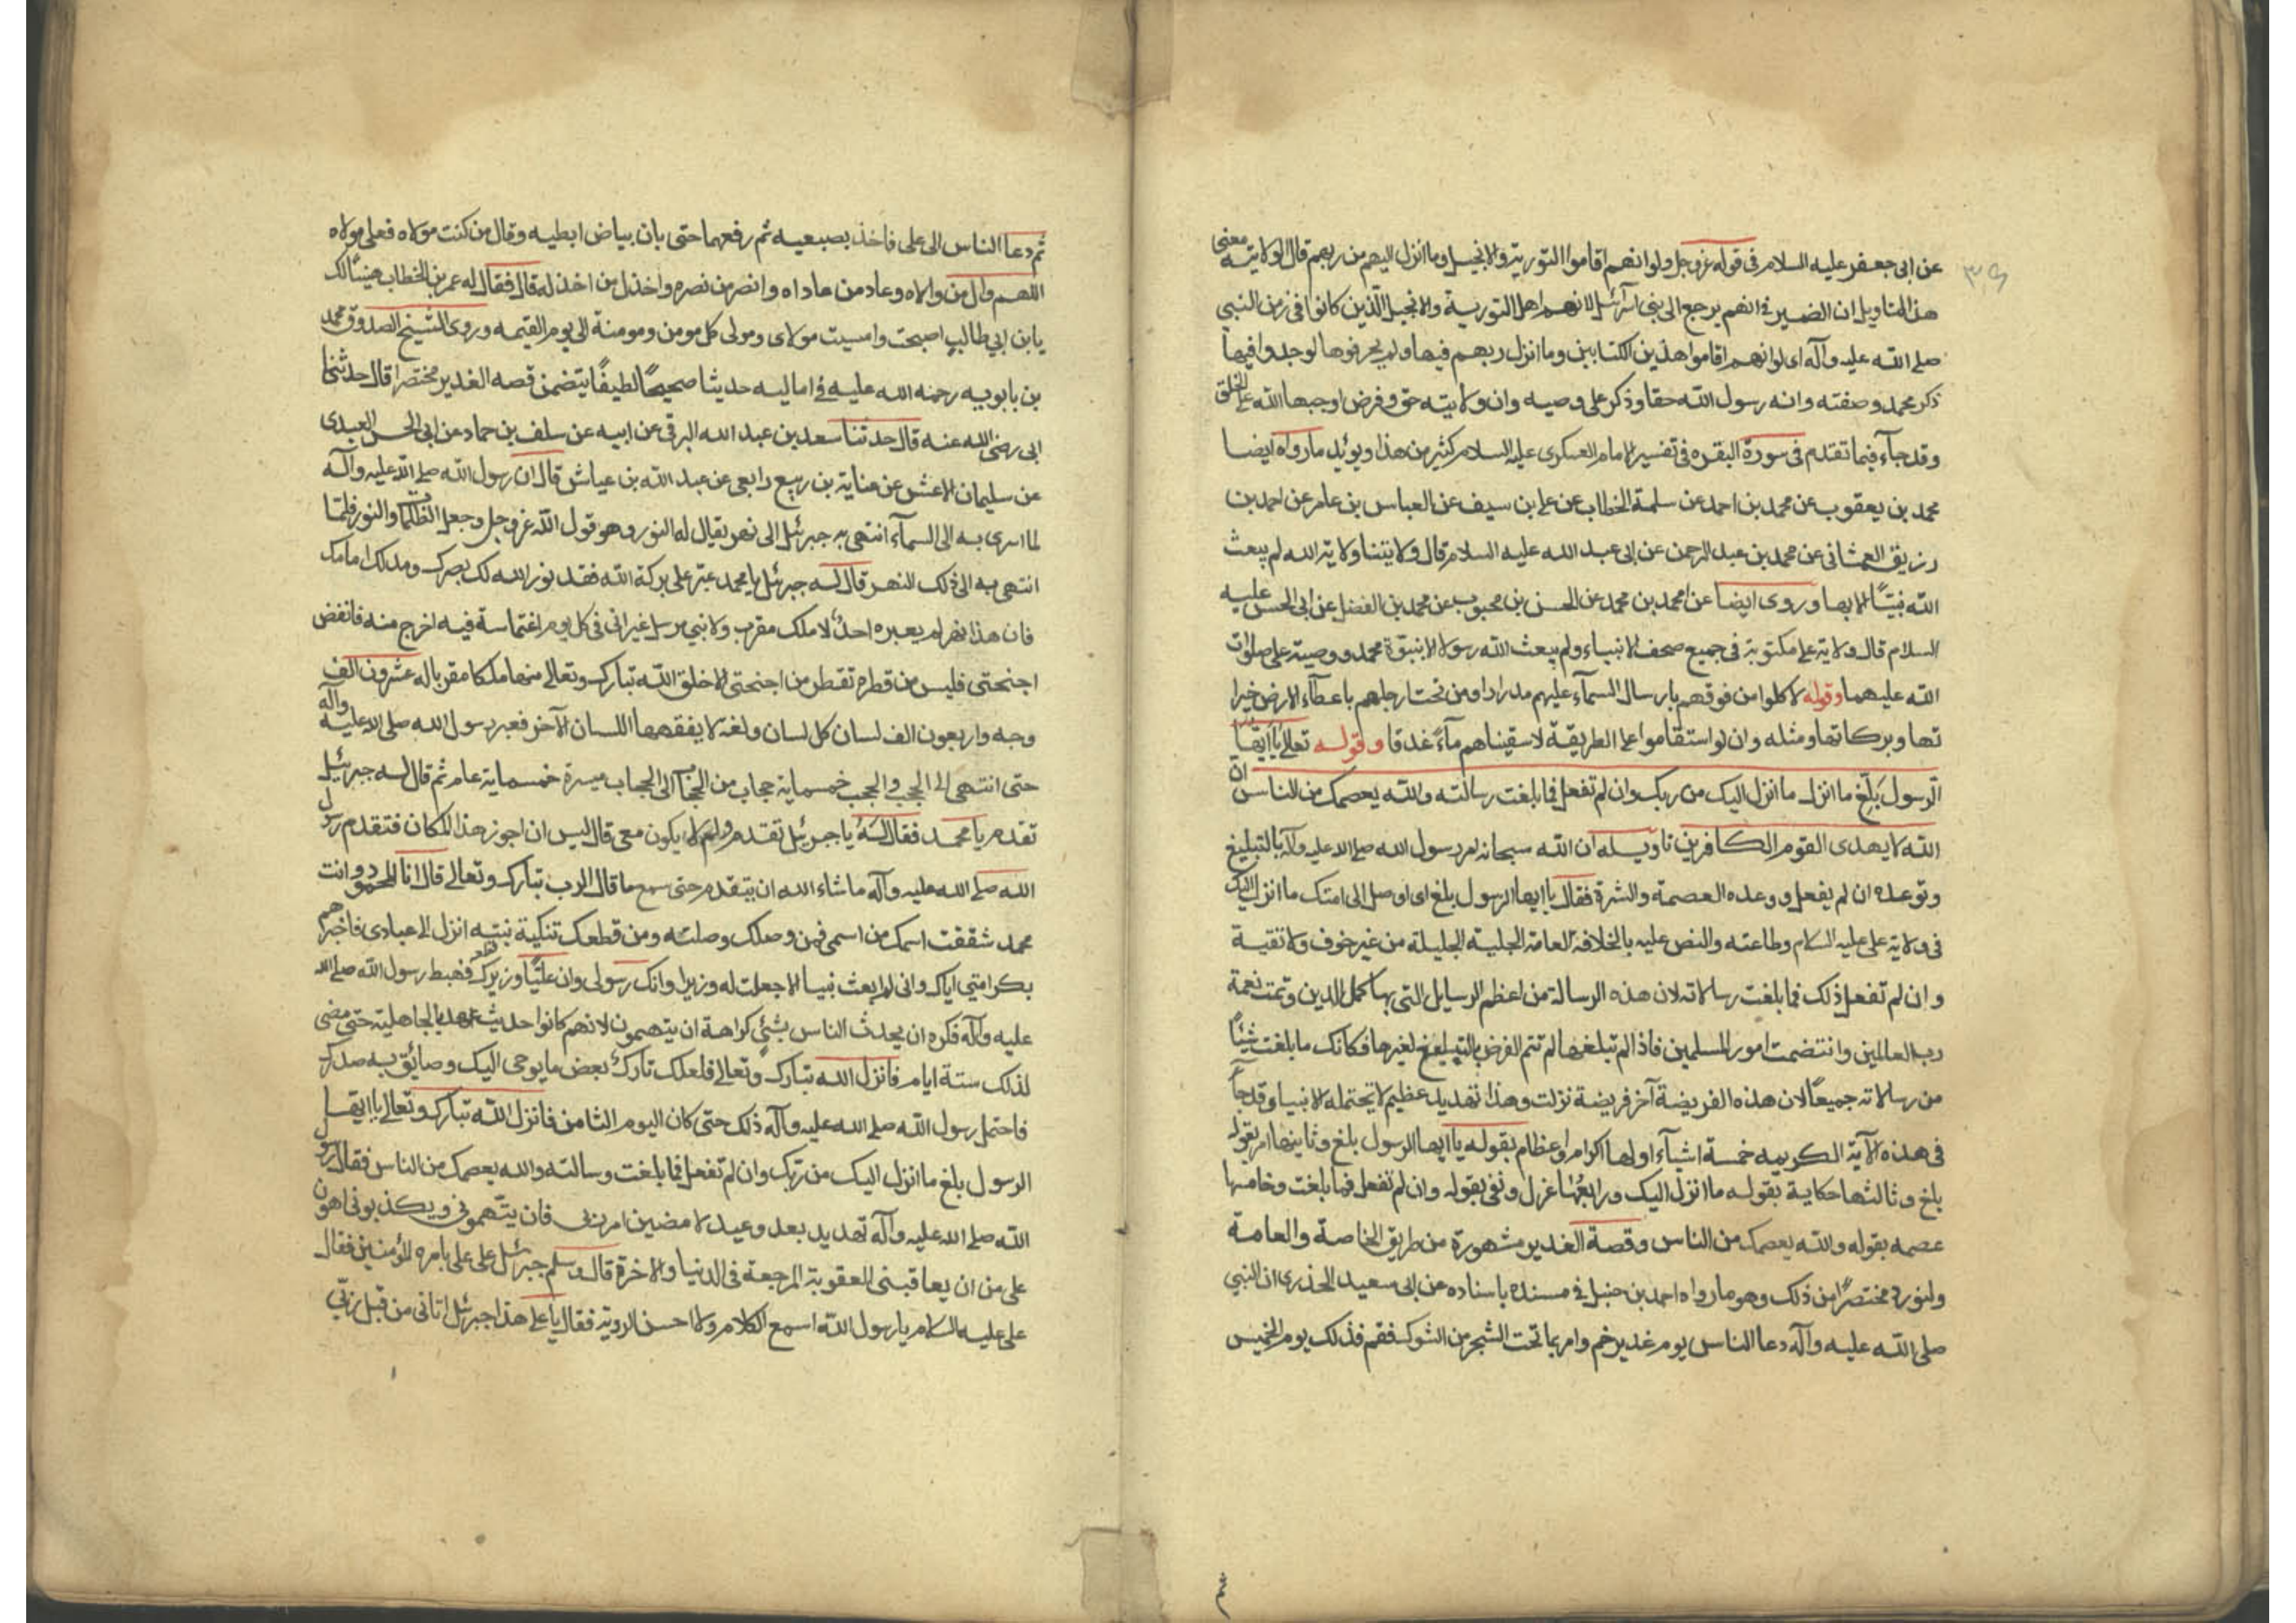 عن ابى جعفر عليه السلام فى قوله عز وجل ولو انهم اقاموا التورية والانجيل وما انزل اليهم من ربهم قال الولاية معنى
هذا التاويل ان الضمير فى انهم يرجع الى بنى اسرآئيل لانهم اهل التورية والانجيل الذين كانوا فى زمن النبى
صلى الله عليه وآله اى لو انهم اقاموا هذين الكتابين وما انزل ربهم فيها ولم يحرفوها لوجدوا فيها
ذكر محمد وصفته وانه رسول الله حقا وذكر على وصيه وان ولايته حق وفرض اوجبها الله على الخلق
وقد جآء فيما تقدم فى سورة البقره فى تفسير الامام العسكرى عليه السلام كثير من هذا ويؤيد ما رواه ايضا
محمد بن يعقوب عن محمد بن احمد عن سلمة الخطاب عن على بن سيف عن العباس بن عامر عن احمد بن
رزيق الغمشانى عن محمد بن عبد الرحمن عن ابى عبد الله عليه السلام قال ولايتنا ولاية الله لم يبعث
الله نبيًّا الا بها وروى ايضا عن محمد بن محمد عن الحسن بن محبوب عن محمد بن الفضل عن ابى الحسن عليه
السلام قال ولاية على مكتوبة فى جميع صحف الانبياء ولم يبعث الله رسولا الا بنبوة محمد ووصية على صلوات
الله عليهما وقوله لاكلوا من فوقهم بارسال السمآء عليهم مدرارا ومن تحت ارجلهم باعطآء الارض خيرا
تها وبركاتها ومثله وان لو استقاموا على الطريقة لاسقيناهم مآءً غدقا وقوله تعالى يا ايها
الرسول بلّغ ما انزل ما انزل اليك من ربك وان لم تفعل فما بلغت رسالته والله يعصمك من الناس ان
الله لا يهدى القوم الكافرين تاويله ان الله سبحانه امر رسول الله صلى الله عليه وآله بالتبليغ
وتوعده ان لم يفعل ووعده العصمة والنشرة فقال يا ايها الرسول بلغ اى اوصل الى امتك ما انزل اليك
فى ولاية على عليه السلام وطاعته والنص عليه بالخلافة العامة الجلية الجليلة من غير خوف ولا تقية
وان لم تفعل ذلك فما بلغت رسالاته لان هذه الرسالة من اعظم الرسايل التى بها كمل الدين وتمت نعمة
رب العالمين وانتضمت امور المسلمين فاذا لم تبلغها لم تتم الغرض بالتبليغ لغيرها فكانك ما بلغت شيئًا
من رسالاته جميعًا لان هذه الفريضة آخر فريضة نزلت وهذا تهديد عظيم لا تحتمله الانبيا وقد جآ
فى هذه الآية الكريمه خمسة اشيآء اولها اكرام واعظام بقوله يا ايها الرسول بلغ وثانيها امر بقوله
بلغ وثالثها حكاية بقوله ما انزل اليك ورابعُها عزل ونفى بقوله وان لم تفعل فما بلغت وخامسها
عصمه بقوله والله يعصمك من الناس وقصة الغدير مشهورة من طريق الخاصة والعامة
ولنورد مختصرًا من ذلك وهو ما رواه احمد بن حنبل فى مسنده باسناده عن ابى سعيد الخذرى ان النبي
صلى الله عليه وآله دعا الناس يوم غدير خم وامر بما تحت الشجر من الشوك فقم فذلك يوم الخميس
ثم
ثم دعا الناس الى على فاخذ بضبعيه ثم رفعهما حتى بان بياض ابطيه وقال من كنت مولاه فعلى مولاه
اللهم وال من والاه وعاد من عاداه وانصر من نصره واخذل من اخذله قال فقال له عمر بن الخطاب هنيئًا لك
يا بن ابي طالب اصبحت وامسيت مولاى ومولى كل مومن ومومنة الى يوم القيمه وروى الشيخ الصدوق محمد
بن بابويه رحمه الله عليه فى اماليه حديثا صحيحًا لطيفًا يتضمن قصه الغدير مختصرا قال حدثنا
ابى رضى الله عنه قال حدثنا سعد بن عبد الله البرقى عن ابيه عن سلف بن حماد عن ابى الحسن العبدى
عن سليمان الاعمش عن عناية بن ربيع رابعى عن عبد الله بن عياش قال ان رسول الله صلى الله عليه وآله
لما اسرى به الى السمآء انتهى به جبرئيل الى نهر يقال له النور وهو قول الله عز وجل وجعل الظلمات والنور فلما
انتهى به الى ذلك النهر قال له جبرئيل يا محمد عبّر على بركة الله فقد نور الله لك بصرك ومد لك امامك
فان هذا نهر لم يعبره احدٌ لا ملك مقرب ولا نبي مرسل غير انى فى كل يوم اغتماسة فيه اخرج منه فانفض
اجنحتى فليس من قطره تقطر من اجنحتى الا خلق الله تبارك وتعالى منها ملكا مقربا له عشرون الف
وجه واربعون الف لسان كل لسان ولغة لا يفقهها اللسان الآخر فعبر رسول الله صلى الله عليه وآله
حتى انتهى الى الحجب والحجب خمسماية حجاب من الحجاب الى الحجاب ميسرة خمسماية عام ثم قال له جبرئيل
تقدم يا محمد فقال له يا جبرئيل تقدم ولم لا يكون معى قال ليس ان اجوز هذا المكان فتقدم رسول
الله صلى الله عليه وآله ما شاء الله ان يتقدم حتى سمع ما قال الرب تبارك وتعالى قال انا المحمود وانت
محمد شققت اسمك من اسمى فمن وصلك وصلته ومن قطعك تنكية نبته انزل الى عبادى فاخبرهم
بكرامتي اياك وانى لم ابعث نبيا الا جعلت له وزيرا وانك رسولى وان عليًّا وزيرك فهبط رسول الله صلى الله
عليه وآله فكره ان يحدث الناس بشئ كراهة ان يتهمون لانهم كانوا حديث عهد بالجاهلية حتى مضى
لذلك ستة ايام فانزل الله تبارك وتعالى فلعلك تارك بعض ما يوحى اليك وضايق به صدرك
فاحتمل رسول الله صلى الله عليه وآله ذلك حتى كان اليوم الثامن فانزل الله تبارك وتعالى يا ايها
الرسول بلغ ما انزل اليك من ربك وان لم تفعل فما بلغت رسالته والله يعصمك من الناس فقال رسول
الله صلى الله عليه وآله تهديد بعد وعيد لامضين امر ربى فان يتّهمونى ويكذبونى اهون
على من ان يعاقبنى العقوبة المرجعة فى الدنيا والاخرة قال وسلم جبرئيل على على بامره المؤمنين فقال
على عليه السلام يا رسول الله اسمع الكلام ولا احسن الروية فقال يا على هذا جبرئيل اتانى من قبل ربّي